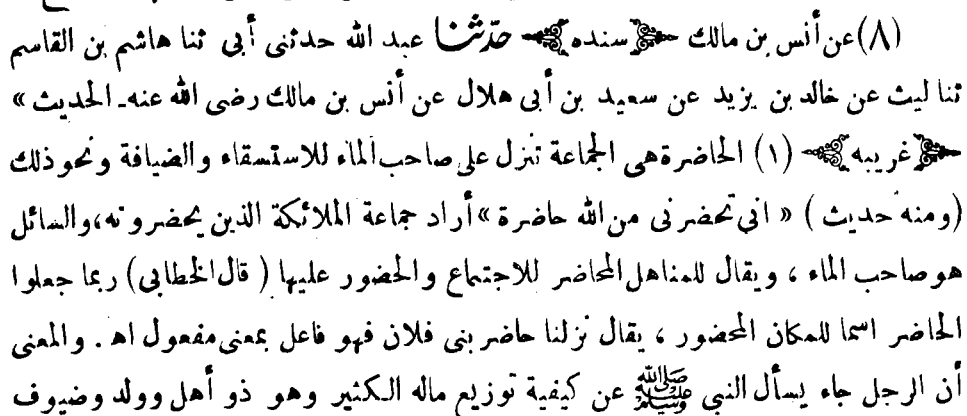 (٨) عن أنس بن مالك ﴿سنده﴾ حدّثنا عبد الله حدثنى أبى ثنا هاشم بن القاسم
ثنا ليث عن خالد بن يزيد عن سعيد بن أبى هلال عن أنس بن مالك رضى الله عنه ـ الحديث »
﴿غريبه﴾ (١) الحاضرة هى الجماعة تنزل على صاحب الماء للاستسقاء والضيافة ونحو ذلك
(ومنه حديث) « انى تحضرنى من الله حاضرة » أراد جماعة الملائكة الذين يحضرونه، والسائل
هو صاحب الماء ، ويقال للمناهل المحاضر للاجتماع والحضور عليها (قال الخطابى) ربما جعلوا
الحاضر اسما للمكان المحضور ، يقال نزلنا حاضر بنى فلان فهو فاعل بمعنى مفعول اهـ . والمعنى
أن الرجل جاء يسأل النبى ﷺ عن كيفية توزيع ماله الكثير وهو ذو أهل وولد وضيوف